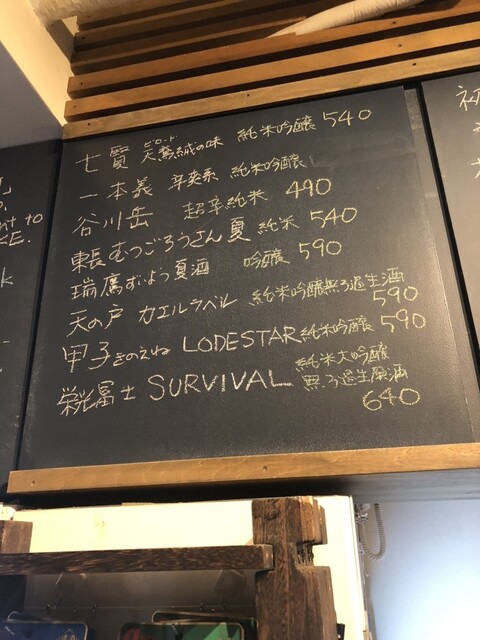 七賢 天鵞絨の味 純米吟醸 540
ビロード
一本義 辛爽系 純米吟醸
谷川岳 超辛純米 490
東長 むつごろうさん夏 純米 540
瑞鷹 ずいよう 夏酒 吟醸 590
天の戸 カエルラベル 純米吟醸無ろ過生酒 590
甲子 きのえね LODESTAR 純米吟醸 590
栄光冨士 SURVIVAL 純米大吟醸
無ろ過生原酒
640
初
nt to
KE.
k